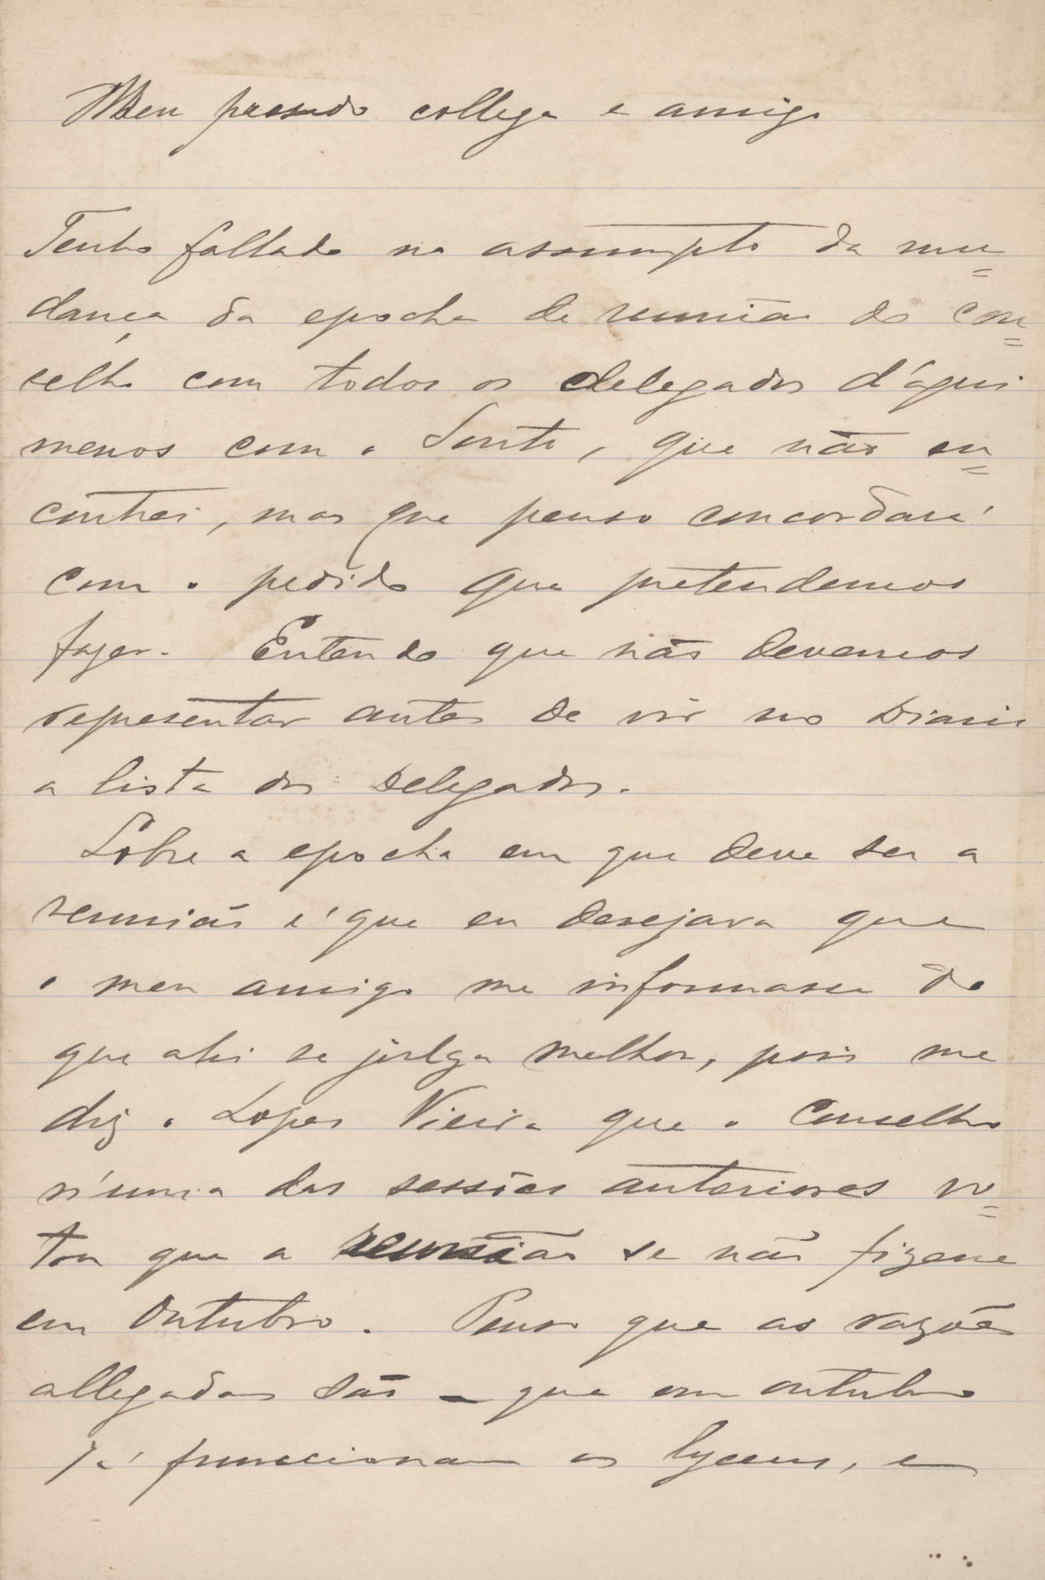 Meu presado collega e amigo
Tenho fallado no assumpto da mu=
dança da epocha de reunião do con=
selho com todos os delegados d'aqui
menos com o Souto, que não en=
contrei, mas que penso concordará
com o pedido que pretendemos
fazer. Entendo que não devemos
representar antes de vir no Diario
a lista dos delegados.
Sobre a epocha em que deve ser a
reunião é que eu desejava que
o meu amigo me informasse do
que ahi se julga melhor, pois me
diz o Lopes Vieira que o Conselho
n'uma das sessões anteriores vo=
tou que a reunião se não fizesse
em Outubro. Penso que as razões
allegadas são – que em outubro
já funccionam os lyceus, e